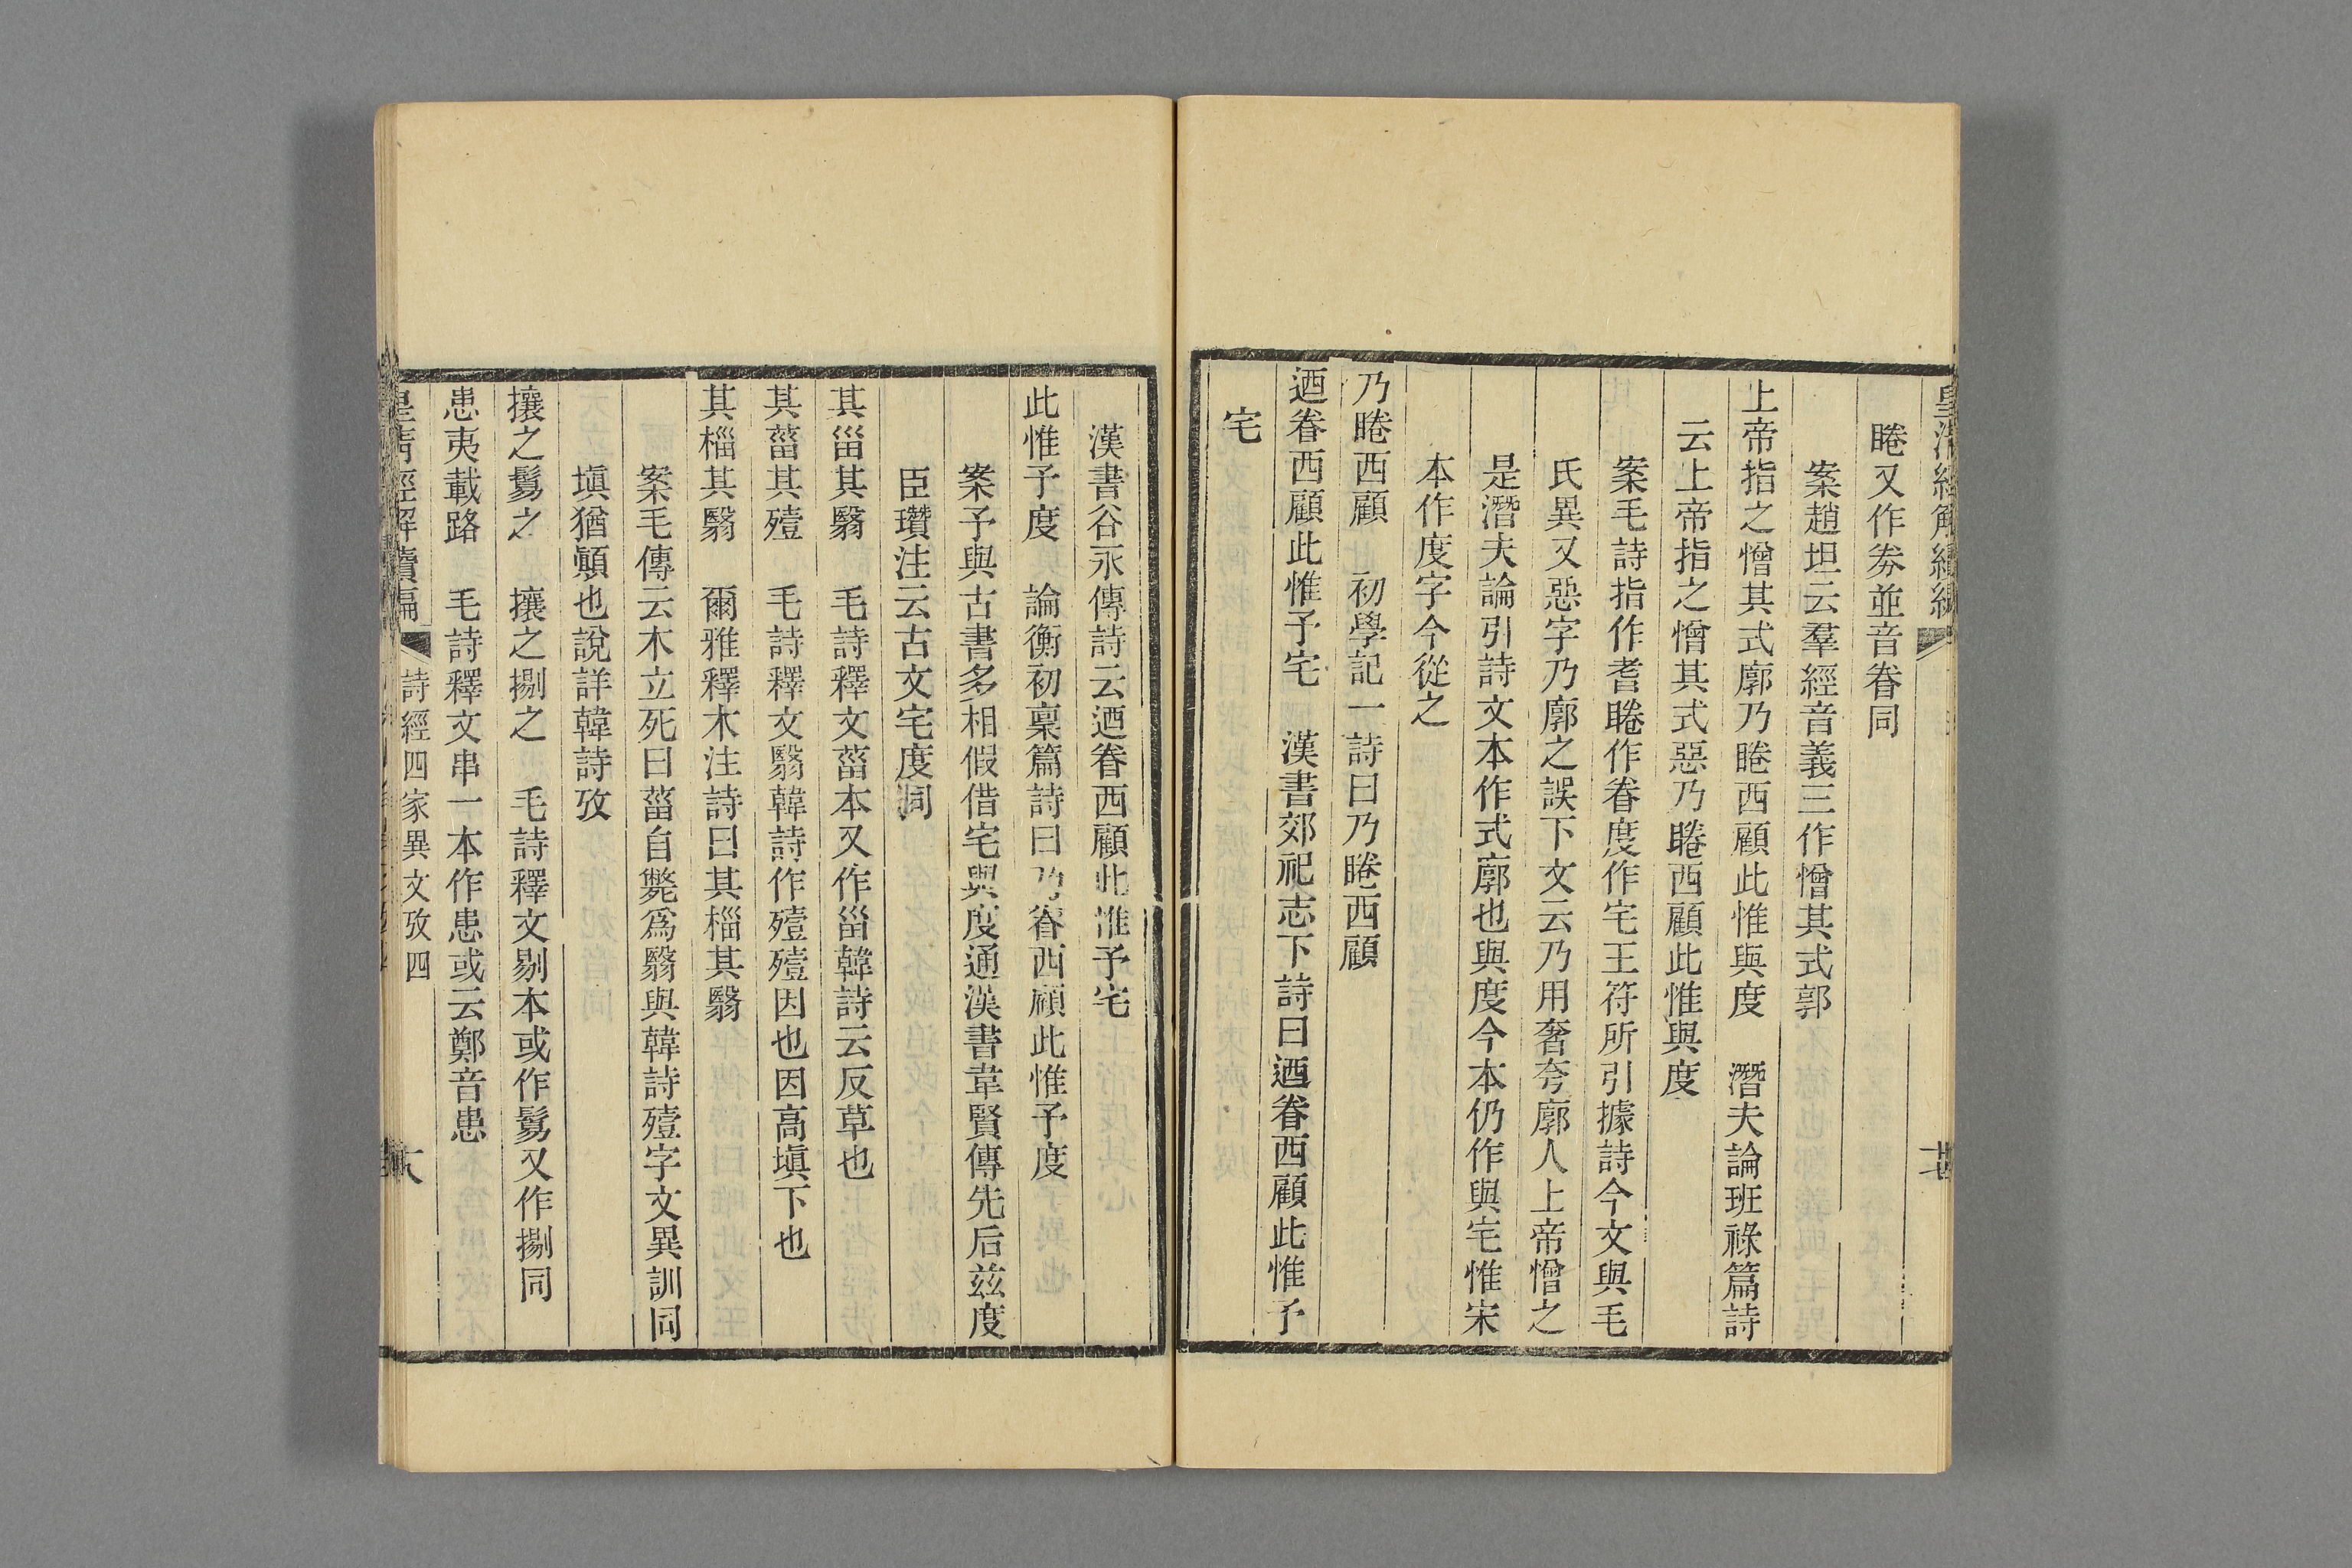 皇清經解續編
睠又作劵並音眷同
案趙坦云羣經音義三作憎其式郭
上帝指之憎其式廓乃睠西顧此惟與度　潛夫論班祿篇詩
云上帝指之憎其式惡乃睠西顧此惟與度
案毛詩指作耆睠作眷度作宅王符所引據詩今文與毛
氏異又惡字乃廓之誤下文云乃用奢夸廓人上帝憎之
是潛夫論引詩文本作式廓也與度今本仍作與宅惟宋
本作度字今從之
乃睠西顧　初學記一詩曰乃睠西顧
迺眷西顧此惟予宅　漢書郊祀志下詩曰迺眷西顧此惟予
宅
漢書谷永傳詩云迺眷西顧此惟予宅
此惟予度　論衡初稟篇詩曰乃眷西顧此惟予度
案予與古書多相假借宅與度通漢書韋賢傳先后茲度
臣瓚注云古文宅度同
其甾其翳　毛詩釋文菑本又作甾韓詩云反草也
其菑其殪　毛詩釋文翳韓詩作殪殪因也因高塡下也
其椔其翳　爾雅釋木注詩曰其椔其翳
案毛傳云木立死曰菑自斃爲翳與韓詩殪字文異訓同
塡猶顚也說詳韓詩攷
攘之鬄之　攘之捌之　毛詩釋文剔本或作鬄又作捌同
患夷載路　毛詩釋文串一本作患或云鄭音患
皇清經解續編　詩經四家異文攷四